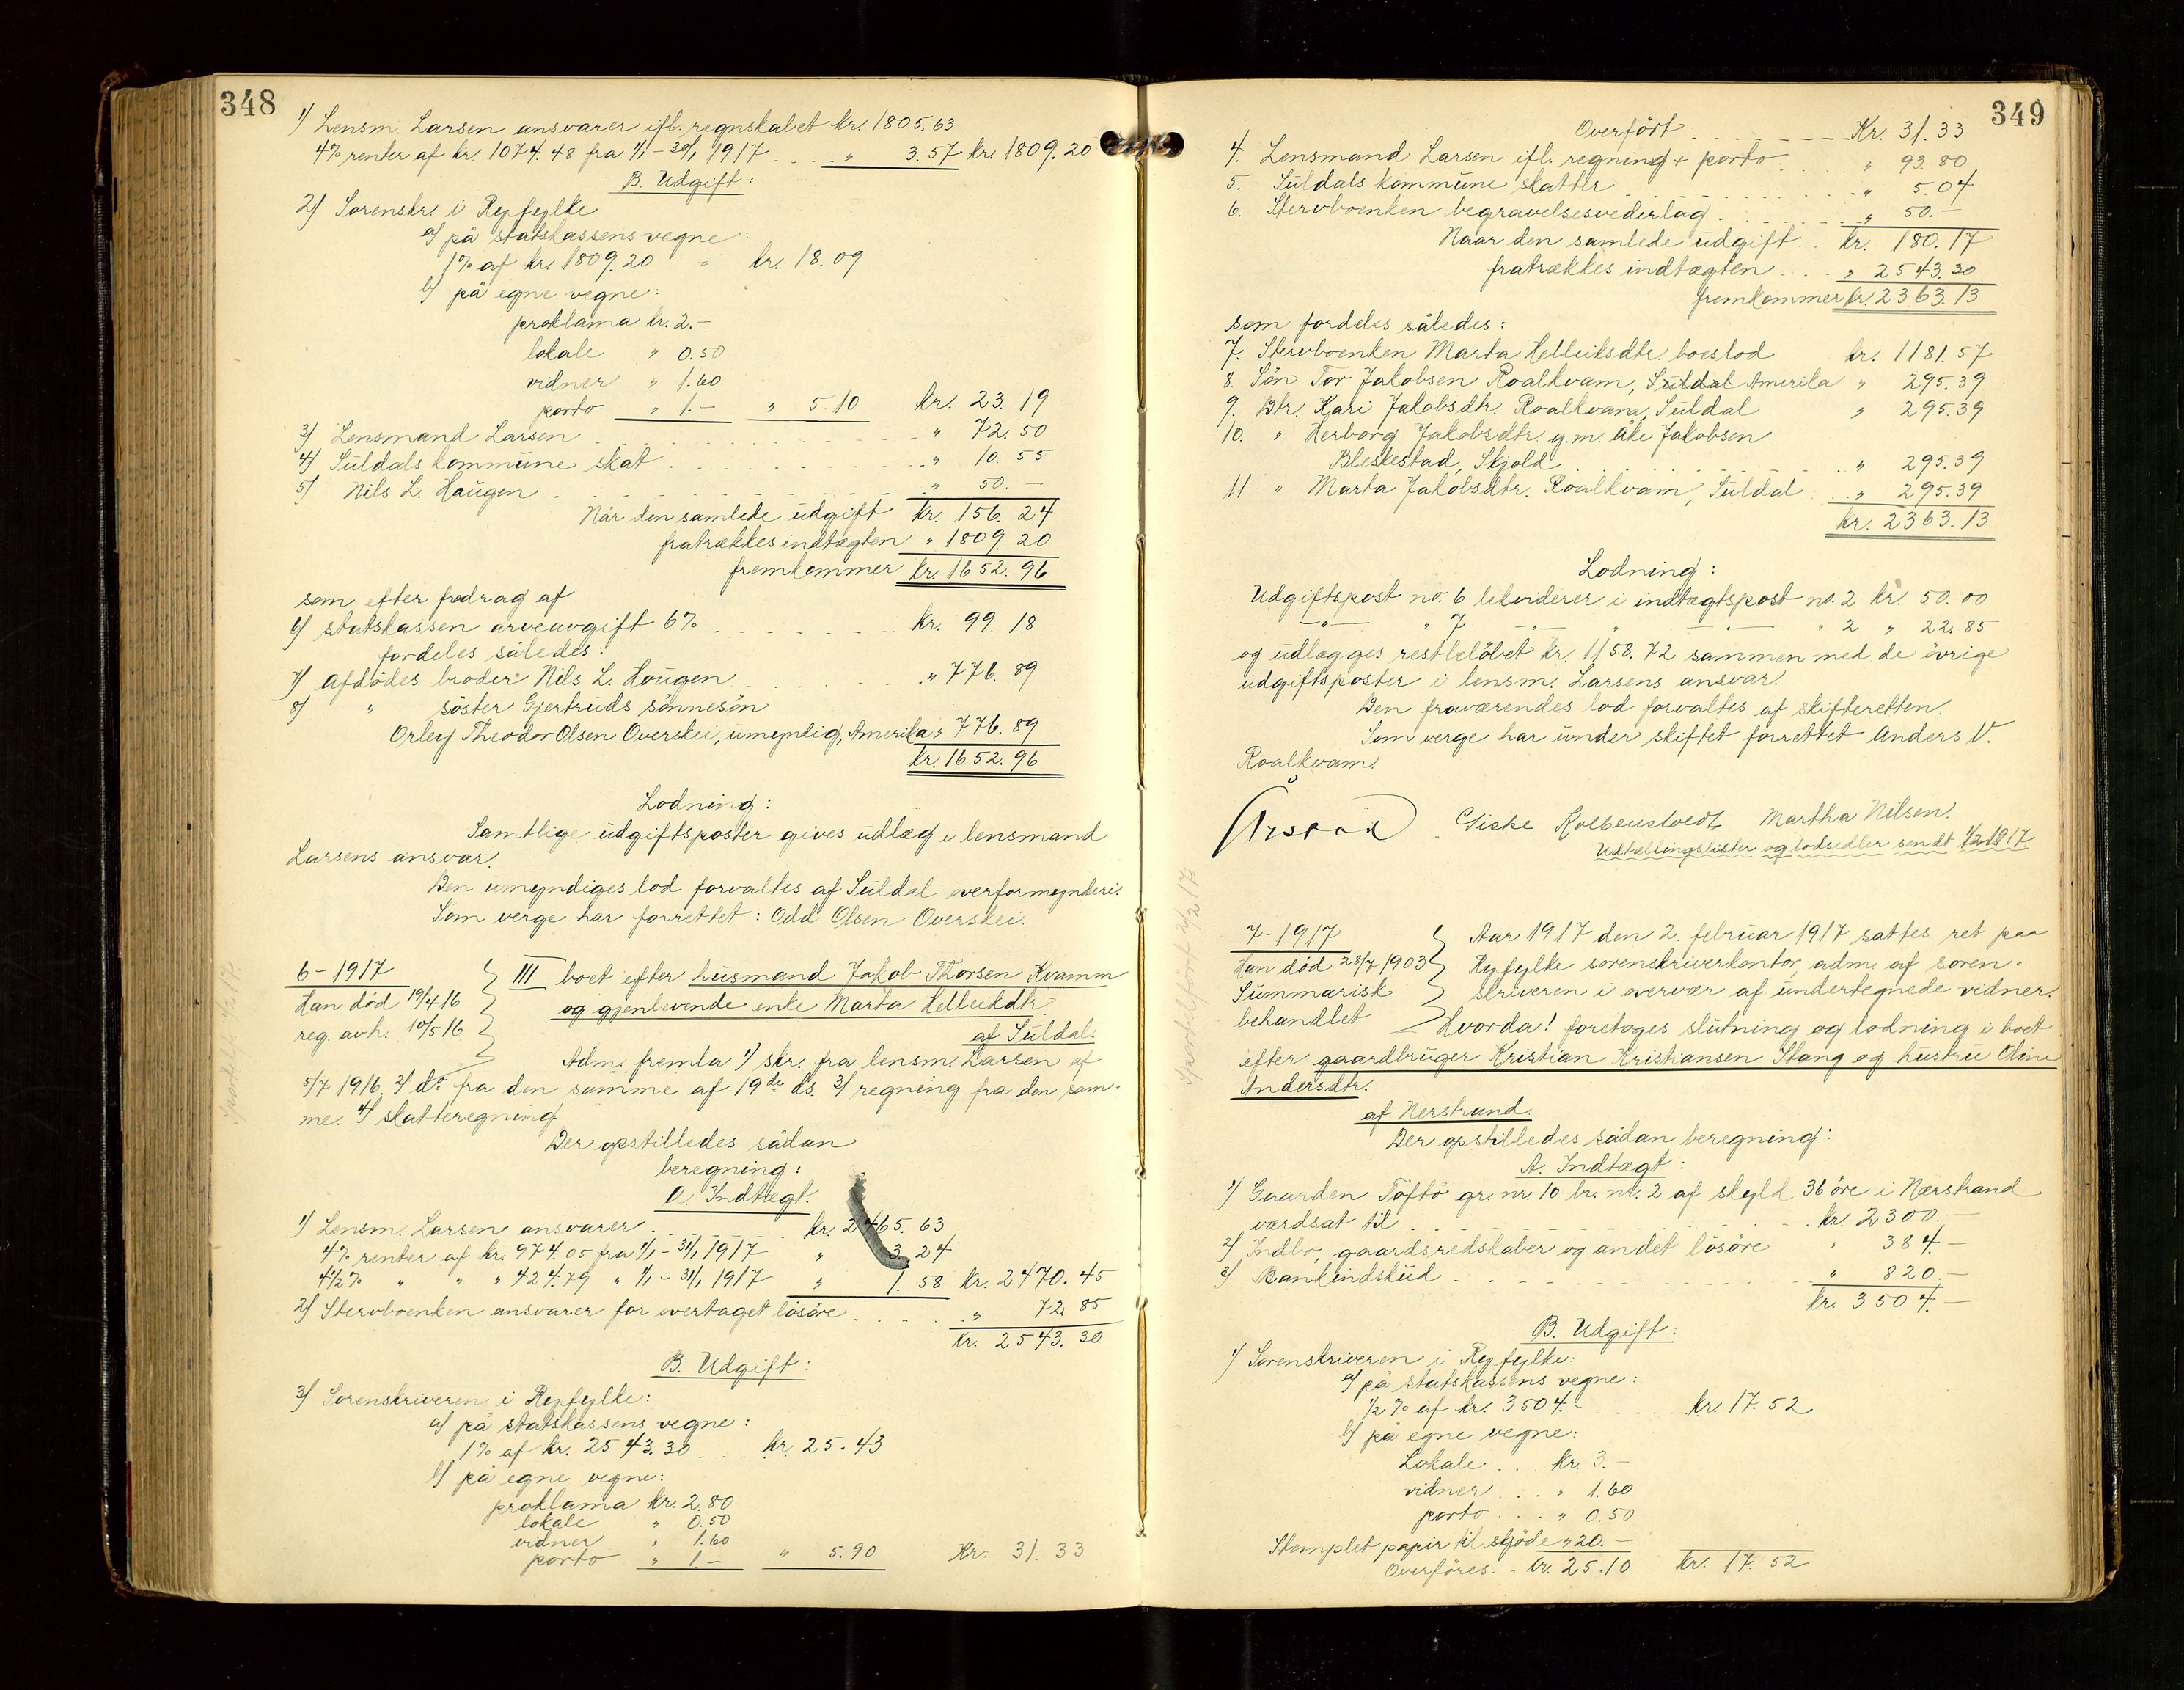 348
1) Lensm. Larsen ansvarer ifl. regnskabet kr. 1805.63
4% renter af kr. 1074.48 fra 1/1 - 30/1 1917 . . . . " 3.57 kr. 1809.20
B. Udgift:
2) Sorenskr. i Ryfylke
a) på statskassens vegne:
1% af kr. 1809.20 " kr. 18.09
b) på egne vegne:
proklama kr. 2.-
lokale " 0.50
vidner " 1.60
porto " 1.- " 5.10 kr. 23.19
3) Lensmand Larsen . . . . . " 72.50
4) Suldals kommune skat . . . . . " 10.55
5) Nils L. Haugen . . . . . " 50.-
Når den samlede udgift kr. 156.24
fratrækkes indtægten " 1809.20
fremkommer kr. 1652.96
som efter fradrag af
6) statskassen arveavgift 6% . . . . . kr. 99.18
fordeles således:
7) Afdødes broder Nils L. Hougen . . . . . " 776.89
8) " søster Gjertruds sønnesøn
Orley Theodor Olsen Overskei, umyndig, Amerika " 776.89
kr. 1652.96
Lodning:
Samtlige udgiftsposter gives udlæg i lensmand
Larsens ansvar.
Den umyndiges lod forvaltes af Suldal overformynderi.
Som verge har forrettet: Odd Olsen Overskei.
6-1917
Han död 19/4 16
reg. avh. 10/5 16
III boet efter husmand Jakob Thorsen Kvamm
og gjenlevende enke Marta Helleikdtr.
af Suldal.
Adm. fremla 1) skr. fra lensm. Larsen af
5/7 1916, 2) do fra den samme af 19de ds. 3) regning fra den sam-
me. 4) skatteregning
Der opstilledes sådan
beregning:
A. Indtægt.
1) Lensm. Larsen ansvarer . . . . . kr. 2465.63
4% renter af kr. 974.05 fra 1/1 - 31/1 1917 " 3.24
4 1/2% " " " 424.79 " 1/1 - 31/1 1917 " 1.58 kr. 2470.45
2) Stervboenken ansvarer for overtaget lösöre . . . . . " 72.85
kr. 2543.30
B. Udgift:
3) Sorenskriveren i Ryfylke:
a) på statskassens vegne:
1% af kr. 2543.30 . . . kr. 25.43
b) på egne vegne:
proklama kr. 2.80
lokale " 0.50
vidner " 1.60
porto " 1.- " 5.90 kr. 31.33
349
Overfört . . . . . Kr. 31.33
4. Lensmand Larsen ifl. regning + porto . . . . " 93.80
5. Suldals kommune skatter . . . . . " 5.04
6. Stervboenken begravelsesvederlag . . . . . " 50.-
Naar den samlede udgift . . kr. 180.17
fratrækkes indtægten . . . . " 2543.30
fremkommer kr. 2363.13
som fordeles således:
7. Stervboenken Marta Helleiksdtr. boeslod kr. 1181.57
8. Sön Tor Jakobsen Roalkvam, Suldal Amerika " 295.39
9. Dtr. Kari Jakobsdtr. Roalkvam, Suldal " 295.39
10. " Herborg Jakobsdtr. g.m. Åke Jakobsen
Bleskestad, Skjold . . . . . " 295.39
11 " Marta Jakobsdtr. Roalkvam, Suldal . . . " 295.39
kr. 2363.13
Lodning:
Udgiftspost no. 6 likviderer i indtægtspost no. 2 kr. 50.00
—"— " 7 —"— " —"— " 2 " 22.85
og udlægges restbelöbet kr. 1158.72 sammen med de övrige
udgiftsposter i lensm. Larsens ansvar.
Den fraværendes lod forvaltes af skifteretten.
Som verge har under skiftet forrettet Anders V.
Roalkvam.
Giske Kolbenstvedt Martha Nilsen.
Udtællingslister og lodsedler sendt 1/2 1917
7-1917
Han död 28/7 1903
Summarisk
behandlet
Aar 1917 den 2. februar 1917 sattes ret paa
Ryfylke sorenskriverkontor, adm. af soren-
skriveren i overvær af undertegnede vidner.
Hvorda! foretoges slutning og lodning i boet
efter gaardbruger Kristian Kristiansen Stang og hustru Oline
Andersdtr.
af Nerstrand.
Der opstilledes sådan beregning:
A. Indtægt:
1) Gaarden Toftö gr. nr. 10 br. nr. 2 af skyld 36 öre i Nærstrand
værdsat til . . . . . kr. 2300.-
2) Indbo, gaardsredskaber og andet lösöre " 384.-
3) Bankindskud . . . . . " 820.-
kr. 3504.-
B. Udgift:
1) Sorenskriveren i Ryfylke:
a) på statskassens vegne:
1/2% af kr. 3504.- . . . . . kr. 17.52
b) på egne vegne:
Lokale . . . kr. 3.-
vidner . . . " 1.60
porto . . . " 0.50
Stemplet papir til skjöde " 20.-
Overföres . . kr. 25.10 kr. 17.52